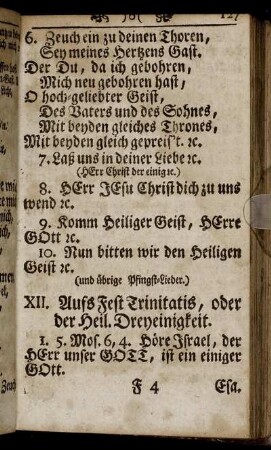 )o( 127
6. Zeuch ein zu deinen Thoren,
Sey meines Hertzens Gast.
Der Du, da ich gebohren,
Mich neu gebohren hast,
O hoch-geliebter Geist,
Des Vaters und des Sohnes,
Mit beyden gleiches Thrones,
Mit beyden gleich gepreis't. ꝛc.
7. Laß uns in deiner Liebe ꝛc.
(HErr Christ der einig ꝛc.)
8. HErr JEsu Christ dich zu uns
wend ꝛc.
9. Komm Heiliger Geist, HErre
GOtt ꝛc.
10. Nun bitten wir den Heiligen
Geist ꝛc.
(und übrige Pfingst-Lieder.)
XII. Aufs Fest Trinitatis, oder
der Heil. Dreyeinigkeit.
1. 5. Mos. 6, 4. Höre Israel, der
HErr unser GOTT, ist ein einiger
GOtt.
F 4 Esa.